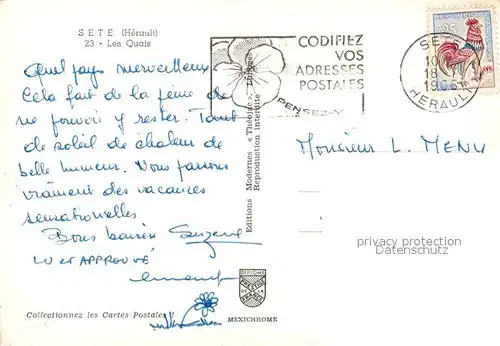 SETE (Hérault)
23 - Les Quais
Quel pays merveilleux
Cela fait de la peine de
ne pouvoir y rester. Tant
de soleil de chaleur de
belle humeur. Nous passons
vraiment des vacances
sensationnelles
Bons baisers Suzanne
LU et APPROUVÉ
Collectionnez les Cartes Postales
Editions Modernes « Théojac » Limoges
Reproduction interdite
DIPLOME
PRESTIGE
DE LA
FRANCE
MEXICHROME
CODIFIEZ
VOS
ADRESSES
POSTALES
PENSEZ-Y
SETE
10
18
19
HERAULT
0,25
Monsieur L. MENU
privacy protection
Datenschutz